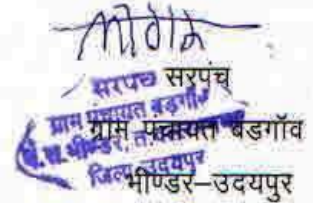 सरपंच सरपंच्
ग्राम पंचायत बडगॉव
ग्राम पंचायत बड़गाँव
जिला-उदयपुर
भीण्डर–उदयपुर